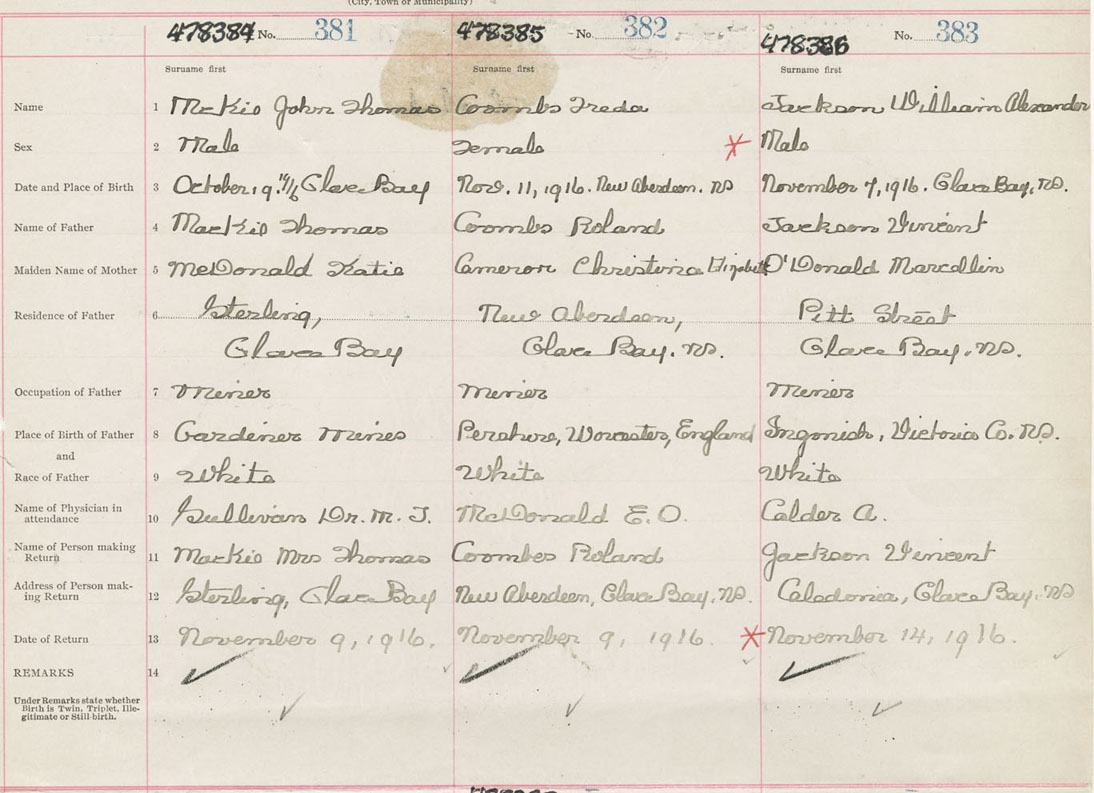 (City, Town or Municipality)
478384 No. 381 478385 No. 382 478386 No. 383
Surname first Surname first Surname first
Name 1 McKio John Thomas Coombs Freda Jackson William Alexander
Sex 2 Male Female Male
Date and Place of Birth 3 October 19. 1916 Glace Bay Nov. 11, 1916. New Aberdeen. NS November 7, 1916. Glace Bay, NS.
Name of Father 4 MacKio Thomas Coombs Roland Jackson Vincent
Maiden Name of Mother 5 McDonald Katie Cameron Christina Elizabeth O'Donald Marcellin
Residence of Father 6 Sterling, New Aberdeen, Pitt Street
Glace Bay Glace Bay. NS. Glace Bay. NS.
Occupation of Father 7 Miner Miner Miner
Place of Birth of Father 8 Gardiner Mines Pershure, Worcester, England Ingonish, Victoria Co. NS.
and
Race of Father 9 White White White
Name of Physician in
attendance 10 Sullivan Dr. M. T. McDonald E. O. Calder A.
Name of Person making
Return 11 Mackio Mrs Thomas Coombes Roland Jackson Vincent
Address of Person mak-
ing Return 12 Sterling, Glace Bay New Aberdeen, Glace Bay. NS. Caledonia, Glace Bay. NS
Date of Return 13 November 9, 1916. November 9, 1916. November 14, 1916.
REMARKS 14
Under Remarks state whether
Birth is Twin, Triplet, Ille-
gitimate or Still-birth.